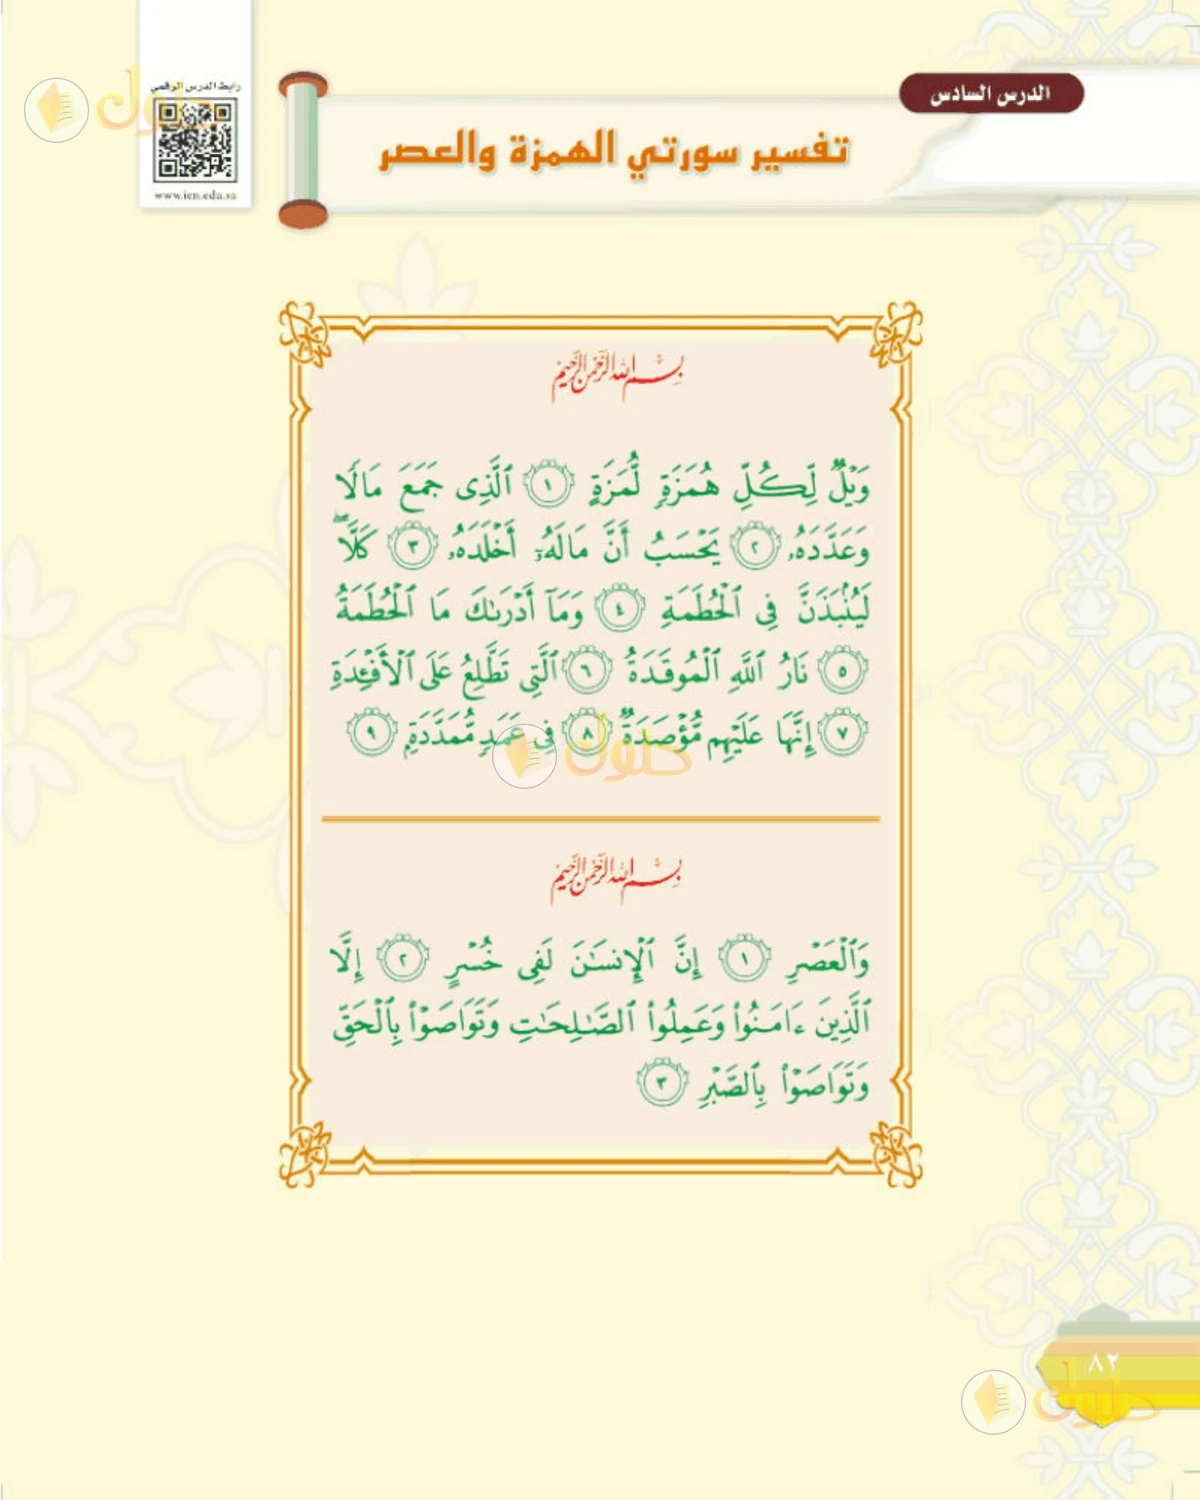 الدرس السادس
رابط الدرس الرقمي
www.ien.edu.sa
تفسير سورتي الهمزة والعصر
بِسْمِ اللَّهِ الرَّحْمَٰنِ الرَّحِيمِ
وَيۡلٞ لِّكُلِّ هُمَزَةٖ لُّمَزَةٍ ١ ٱلَّذِى جَمَعَ مَالٗا
وَعَدَّدَهُۥ ٢ يَحۡسَبُ أَنَّ مَالَهُۥٓ أَخۡلَدَهُۥ ٣ كَلَّاۖ
لَيُنۢبَذَنَّ فِى ٱلۡحُطَمَةِ ٤ وَمَآ أَدۡرَىٰكَ مَا ٱلۡحُطَمَةُ
٥ نَارُ ٱللَّهِ ٱلۡمُوقَدَةُ ٦ ٱلَّتِى تَطَّلِعُ عَلَى ٱلۡأَفۡـِٔدَةِ
٧ إِنَّهَا عَلَيۡهِم مُّؤۡصَدَةٞ ٨ فِى عَمَدٖ مُّمَدَّدَةِۭ ٩
بِسْمِ اللَّهِ الرَّحْمَٰنِ الرَّحِيمِ
وَٱلۡعَصۡرِ ١ إِنَّ ٱلۡإِنسَٰنَ لَفِى خُسۡرٍ ٢ إِلَّا
ٱلَّذِينَ ءَامَنُواْ وَعَمِلُواْ ٱلصَّٰلِحَٰتِ وَتَوَاصَوۡاْ بِٱلۡحَقِّ
وَتَوَاصَوۡاْ بِٱلصَّبۡرِ ٣
٨٢
حلول
حلول
حلول